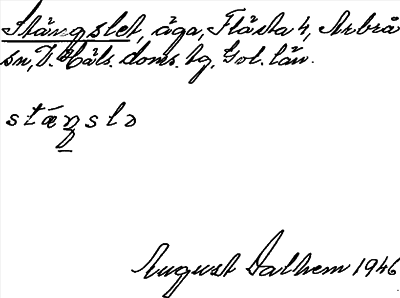 Stängslet, äga, Flästa 4, Arbrå
sn, V. Häls. doms. tg, Gvl. län.
stä́ŋslə
August Dalhem 1946